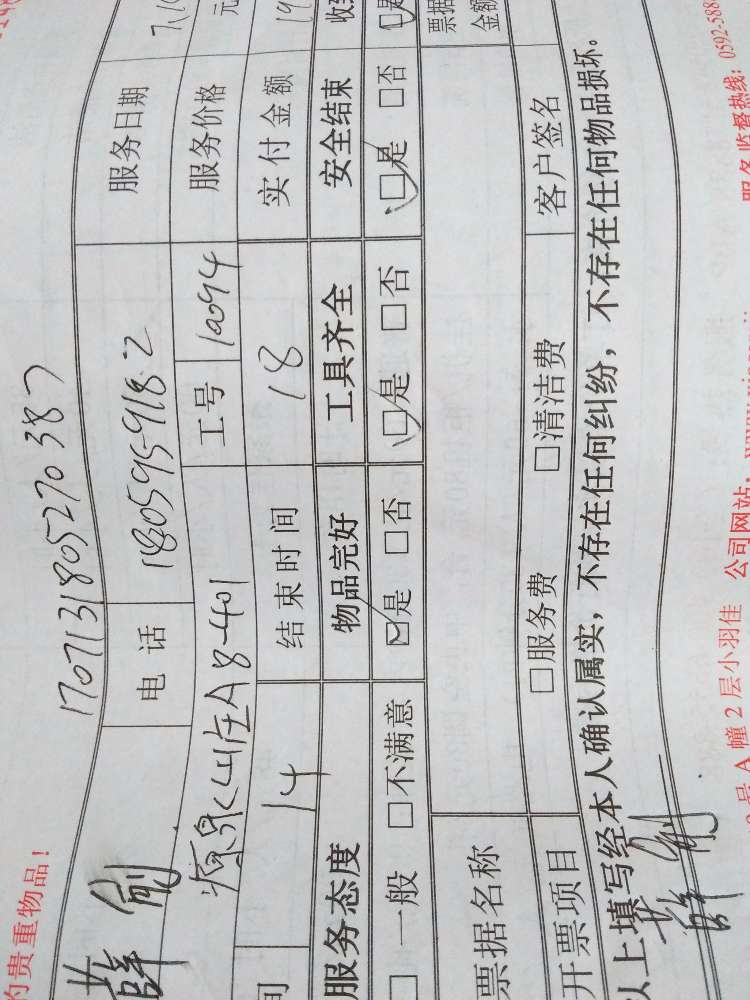 的贵重物品！
1707131805270387
薛 电话 18059591182 服务日期
源泉山庄A8-401 工号 10094 服务价格 元
间 14 结束时间 18 实付金额
服务态度 物品完好 工具齐全 安全结束
□一般 □不满意 ☑是 □否 ☑是 □否 ☑是 □否
票据名称 票据金额
开票项目 □服务费 □清洁费 客户签名
以上填写经本人确认属实，不存在任何纠纷，不存在任何物品损坏。
薛
号A幢2层小羽佳 公司网站： 服务监督热线：0592-588